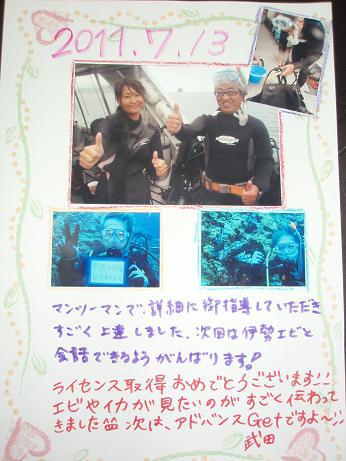 2014.7.13
マンツーマンで、詳細に御指導していただき
すごく上達しました。次回は伊勢エビと
会話できるようがんばります。
ライセンス取得おめでとうございます!!
エビやイカが見たいのがすごく伝わって
きました笑 次は、アドバンスGetですよ〜!!
武田